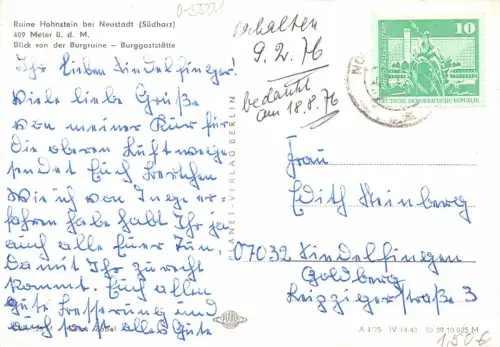 Ruine Hohnstein bei Neustadt (Südharz)
409 Meter ü. d. M.
Blick von der Burgruine – Burggaststätte
erhalten
9.2.76
bedankt
am 18.8.76
10
DEUTSCHE DEMOKRATISCHE REPUBLIK
Ihr lieben Sindelfinger!
Viele liebe Grüße
von meiner Kur für
die oberen Luftwege
sendet Euch
Wie ich von Inge er-
fahren habe habt Ihr ja
auch alle Euer Tun,
damit Ihr zurecht
kommt. Euch allen
gute Besserung und
auch sonst alles Gute
PLANET-VERLAG BERLIN
Frau
Edith Steinberg
07032 Sindelfingen
Goldberg
Leipziger Straße 3
PLANET
A 4/25 IV-14-48 03 09 10 025 M
1,50 €